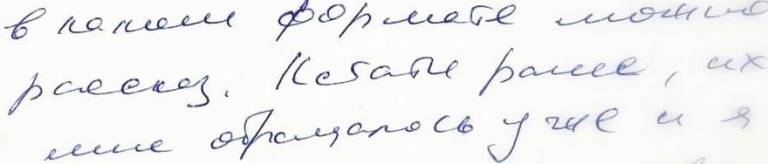 в каком формате можно
рассказ. Кстати ранее, их
мне обращалось уже и я